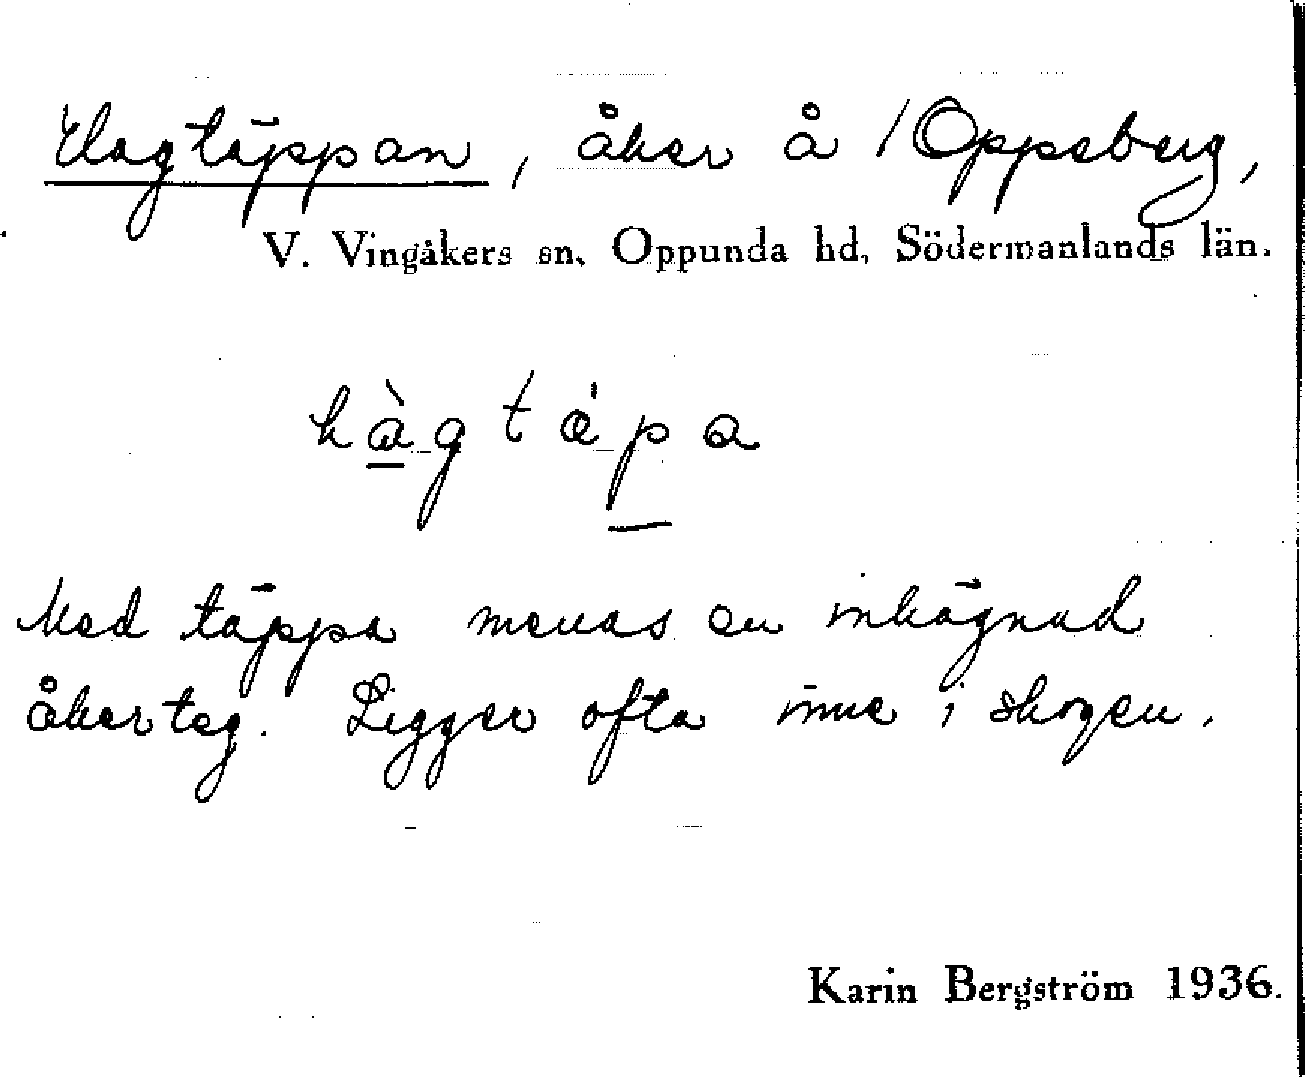 Hagtäppan, åker å /Oppeberg,
V. Vingåkers sn, Oppunda hd, Södermanlands län.
hàgtäpa
Med täppa menas en inhägnad
åkerteg. Ligger ofta inne i skogen.
Karin Bergström 1936.